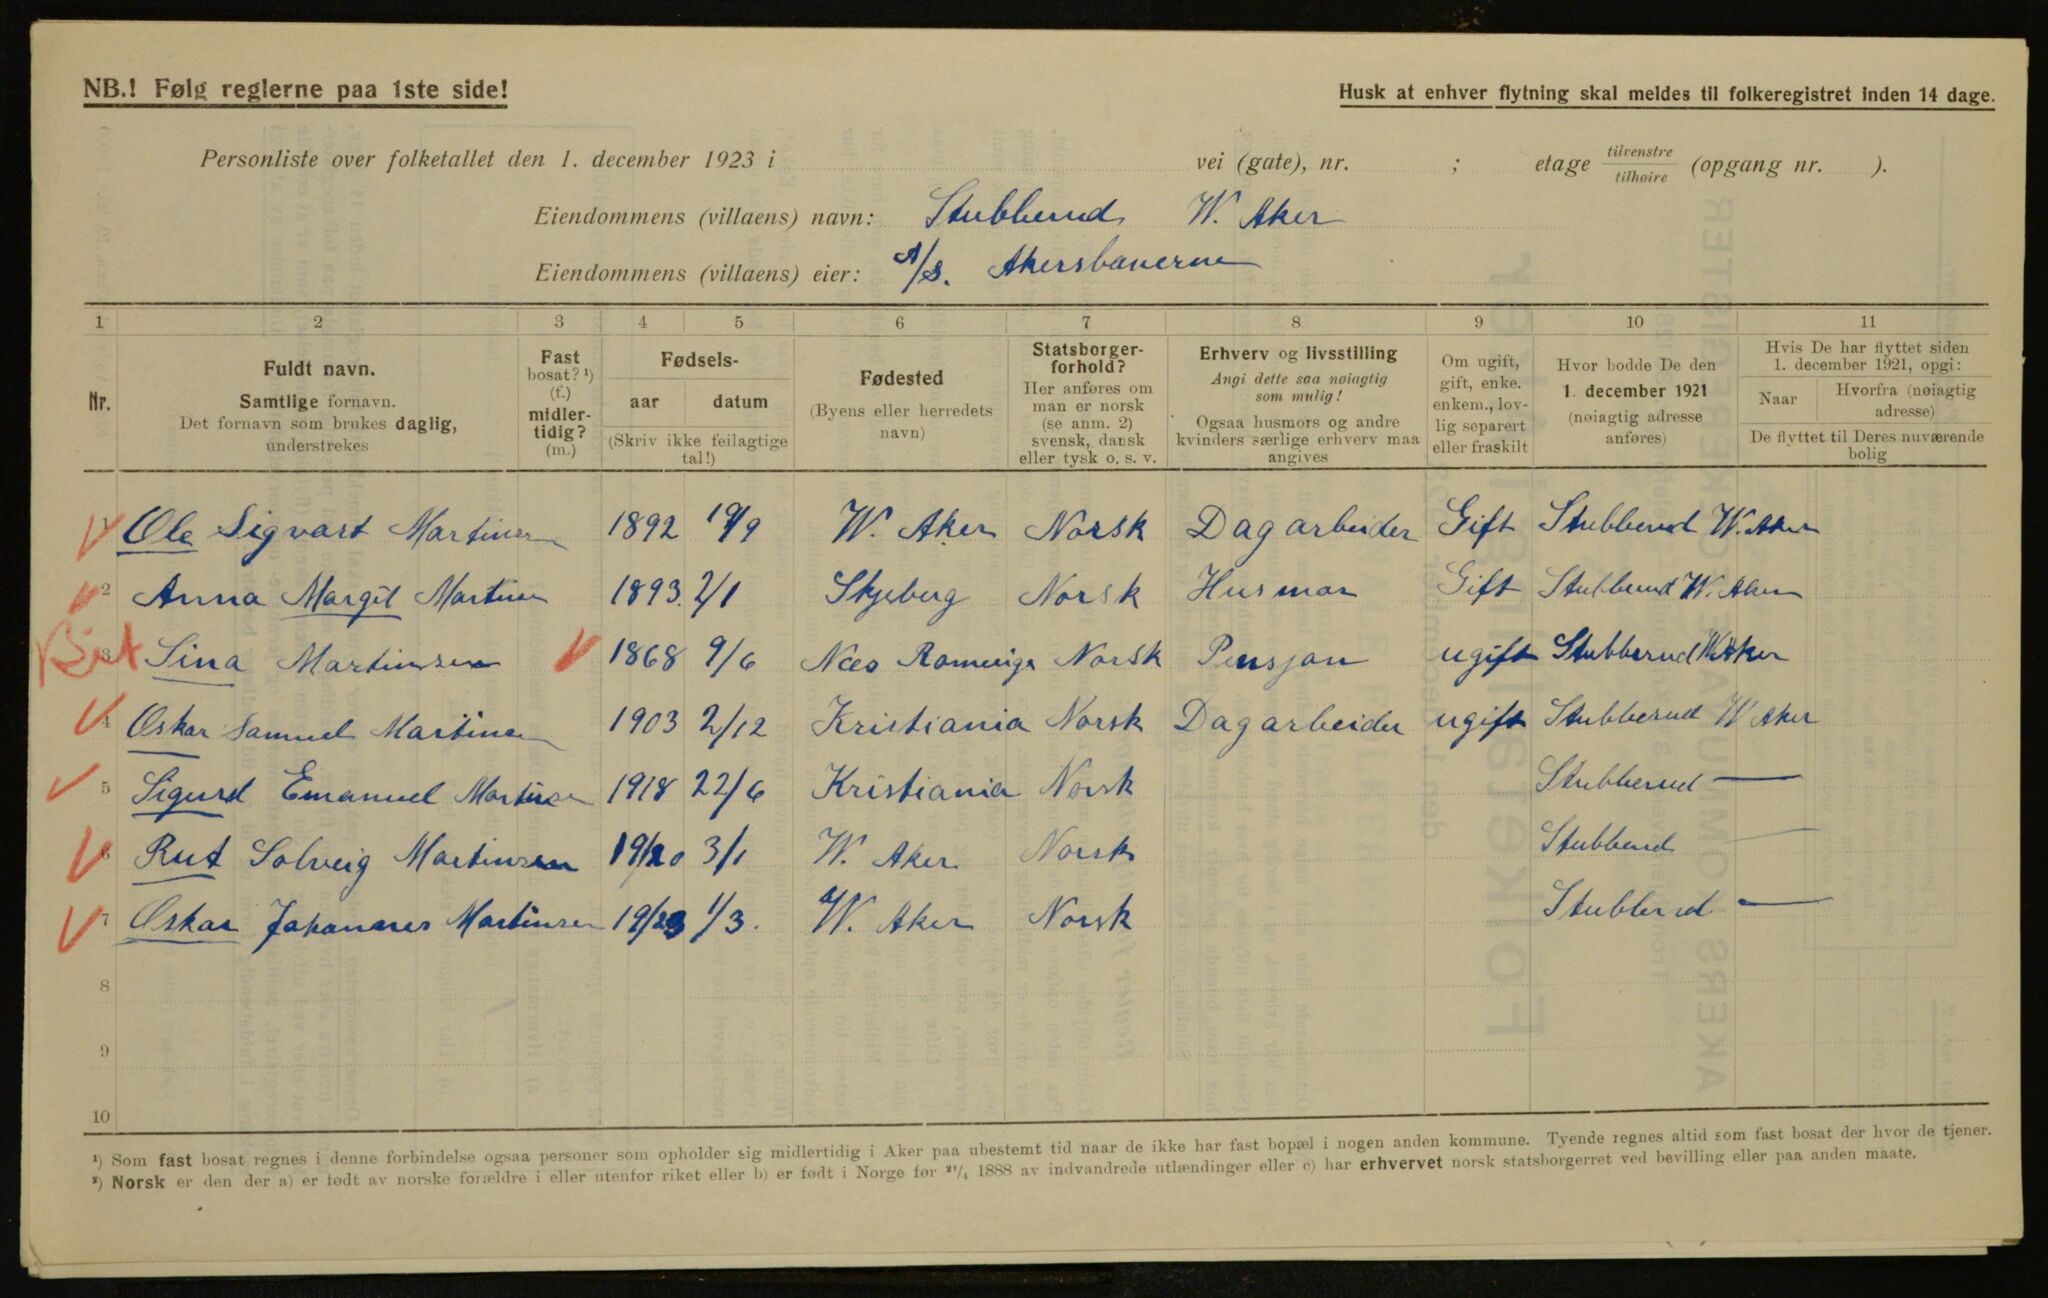 NB.! Følg reglerne paa 1ste side!
Husk at enhver flytning skal meldes til folkeregistret inden 14 dage.
Personliste over folketallet den 1. december 1923 i vei (gate), nr. ; etage tilvenstre / tilhøire (opgang nr. ).
Eiendommens (villaens) navn: Stubberud W. Aker
Eiendommens (villaens) eier: A/S. Akersbanerne
1 2 3 4 5 6 7 8 9 10 11
Nr.
Fuldt navn.
Samtlige fornavn.
Det fornavn som brukes daglig,
understrekes
Fast
bosat? ¹)
(f.)
midler-
tidig?
(m.)
Fødsels-
aar datum
(Skriv ikke feilagtige
tal!)
Fødested
(Byens eller herredets
navn)
Statsborger-
forhold?
Her anføres om
man er norsk
(se anm. 2)
svensk, dansk
eller tysk o. s. v.
Erhverv og livsstilling
Angi dette saa nøiagtig
som mulig!
Ogsaa husmors og andre
kvinders særlige erhverv maa
angives
Om ugift,
gift, enke.
enkem., lov-
lig separert
eller fraskilt
Hvor bodde De den
1. december 1921
(nøiagtig adresse
anføres)
Hvis De har flyttet siden
1. december 1921, opgi:
Naar Hvorfra (nøiagtig
adresse)
De flyttet til Deres nuværende
bolig
1 Ole Sigvart Martinsen 1892 19/9 W. Aker Norsk Dagarbeider Gift Stubberud W. Aker
2 Anna Margit Martinsen 1893. 2/1 Skjeberg Norsk Husmor Gift Stubberud W. Aker
3 Sina Martinsen 1868 9/6 Næs Romerige Norsk Pensjon ugift Stubberud W Aker
4 Oskar Samuel Martinsen 1903 2/12 Kristiania Norsk Dagarbeider ugift Stubberud W Aker
5 Sigurd Emanuel Martinsen 1918 22/6 Kristiania Norsk Stubberud —
6 Rut Solveig Martinsen 19/20 3/1 W. Aker Norsk Stubberud —
7 Oskar Johannes Martinsen 19/23 1/3. W. Aker Norsk Stubberud —
8
9
10
¹) Som fast bosat regnes i denne forbindelse ogsaa personer som opholder sig midlertidig i Aker paa ubestemt tid naar de ikke har fast bopæl i nogen anden kommune. Tyende regnes altid som fast bosat der hvor de tjener.
²) Norsk er den der a) er født av norske forældre i eller utenfor riket eller b) er født i Norge før ²¹/₄ 1888 av indvandrede utlændinger eller c) har erhvervet norsk statsborgerret ved bevilling eller paa anden maate.